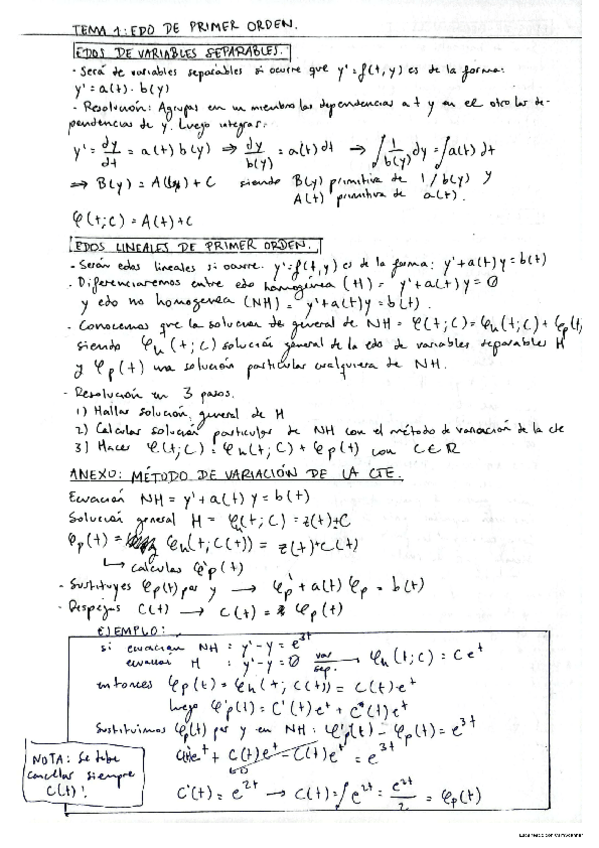 TEMA 1: EDO DE PRIMER ORDEN.
EDOS DE VARIABLES SEPARABLES.
- Será de variables separables si ocurre que y' = f(t,y) es de la forma:
y' = a(t) · b(y)
- Resolución: Agrupas en un miembro las dependencias a t y en el otro las de-
pendencias de y. Luego integras:
y' = dy/dt = a(t) b(y) ⇒ dy/b(y) = a(t) dt → ∫ 1/b(y) dy = ∫ a(t) dt
⇒ B(y) = A(t) + C siendo B(y) primitiva de 1/b(y) y
A(t) primitiva de a(t).
φ(t;C) = A(t) + C
EDOS LINEALES DE PRIMER ORDEN.
- Serán edos lineales si ocurre. y' = f(t,y) es de la forma: y' + a(t) y = b(t)
- Diferenciaremos entre edo homogénea (H) = y' + a(t) y = 0
y edo no homogenea (NH) = y' + a(t) y = b(t).
- Conocemos que la solucion de general de NH = φ(t;C) = φh(t;C) + φp(t,
siendo φh(t;C) solución general de la edo de variables separables H
y φp(t) una solución particular cualquiera de NH.
- Resolución en 3 pasos.
1) Hallar solución general de H
2) Calcular solución particular de NH con el método de variación de la cte
3) Hacer φ(t;C) = φh(t;C) + φp(t) con C∈R
ANEXO: MÉTODO DE VARIACIÓN DE LA CTE.
Ecuación NH = y' + a(t) y = b(t)
Solución general H = φh(t;C) = z(t) + C
φp(t) = φh(t;C(t)) = z(t) + C(t)
↳ calculas φ'p(t)
- Sustituyes φp(t) por y → φ'p + a(t) φp = b(t)
- Despejas C(t) → C(t) = φp(t)
EJEMPLO:
si ecuacion NH : y' - y = e^3t
ecuación H : y' - y = 0 var sep. → φh(t;C) = C e^t
entonces φp(t) = φh(t;C(t)) = C(t) e^t
luego φ'p(t) = C'(t) e^t + C(t) e^t
Sustituimos φp(t) por y en NH : φ'p(t) - φp(t) = e^3t
C'(t) e^t + C(t) e^t - C(t) e^t = e^3t
=0
NOTA: Se debe
cancelar siempre
C(t)!
C'(t) = e^2t → C(t) = ∫ e^2t = e^2t/2 = φp(t)